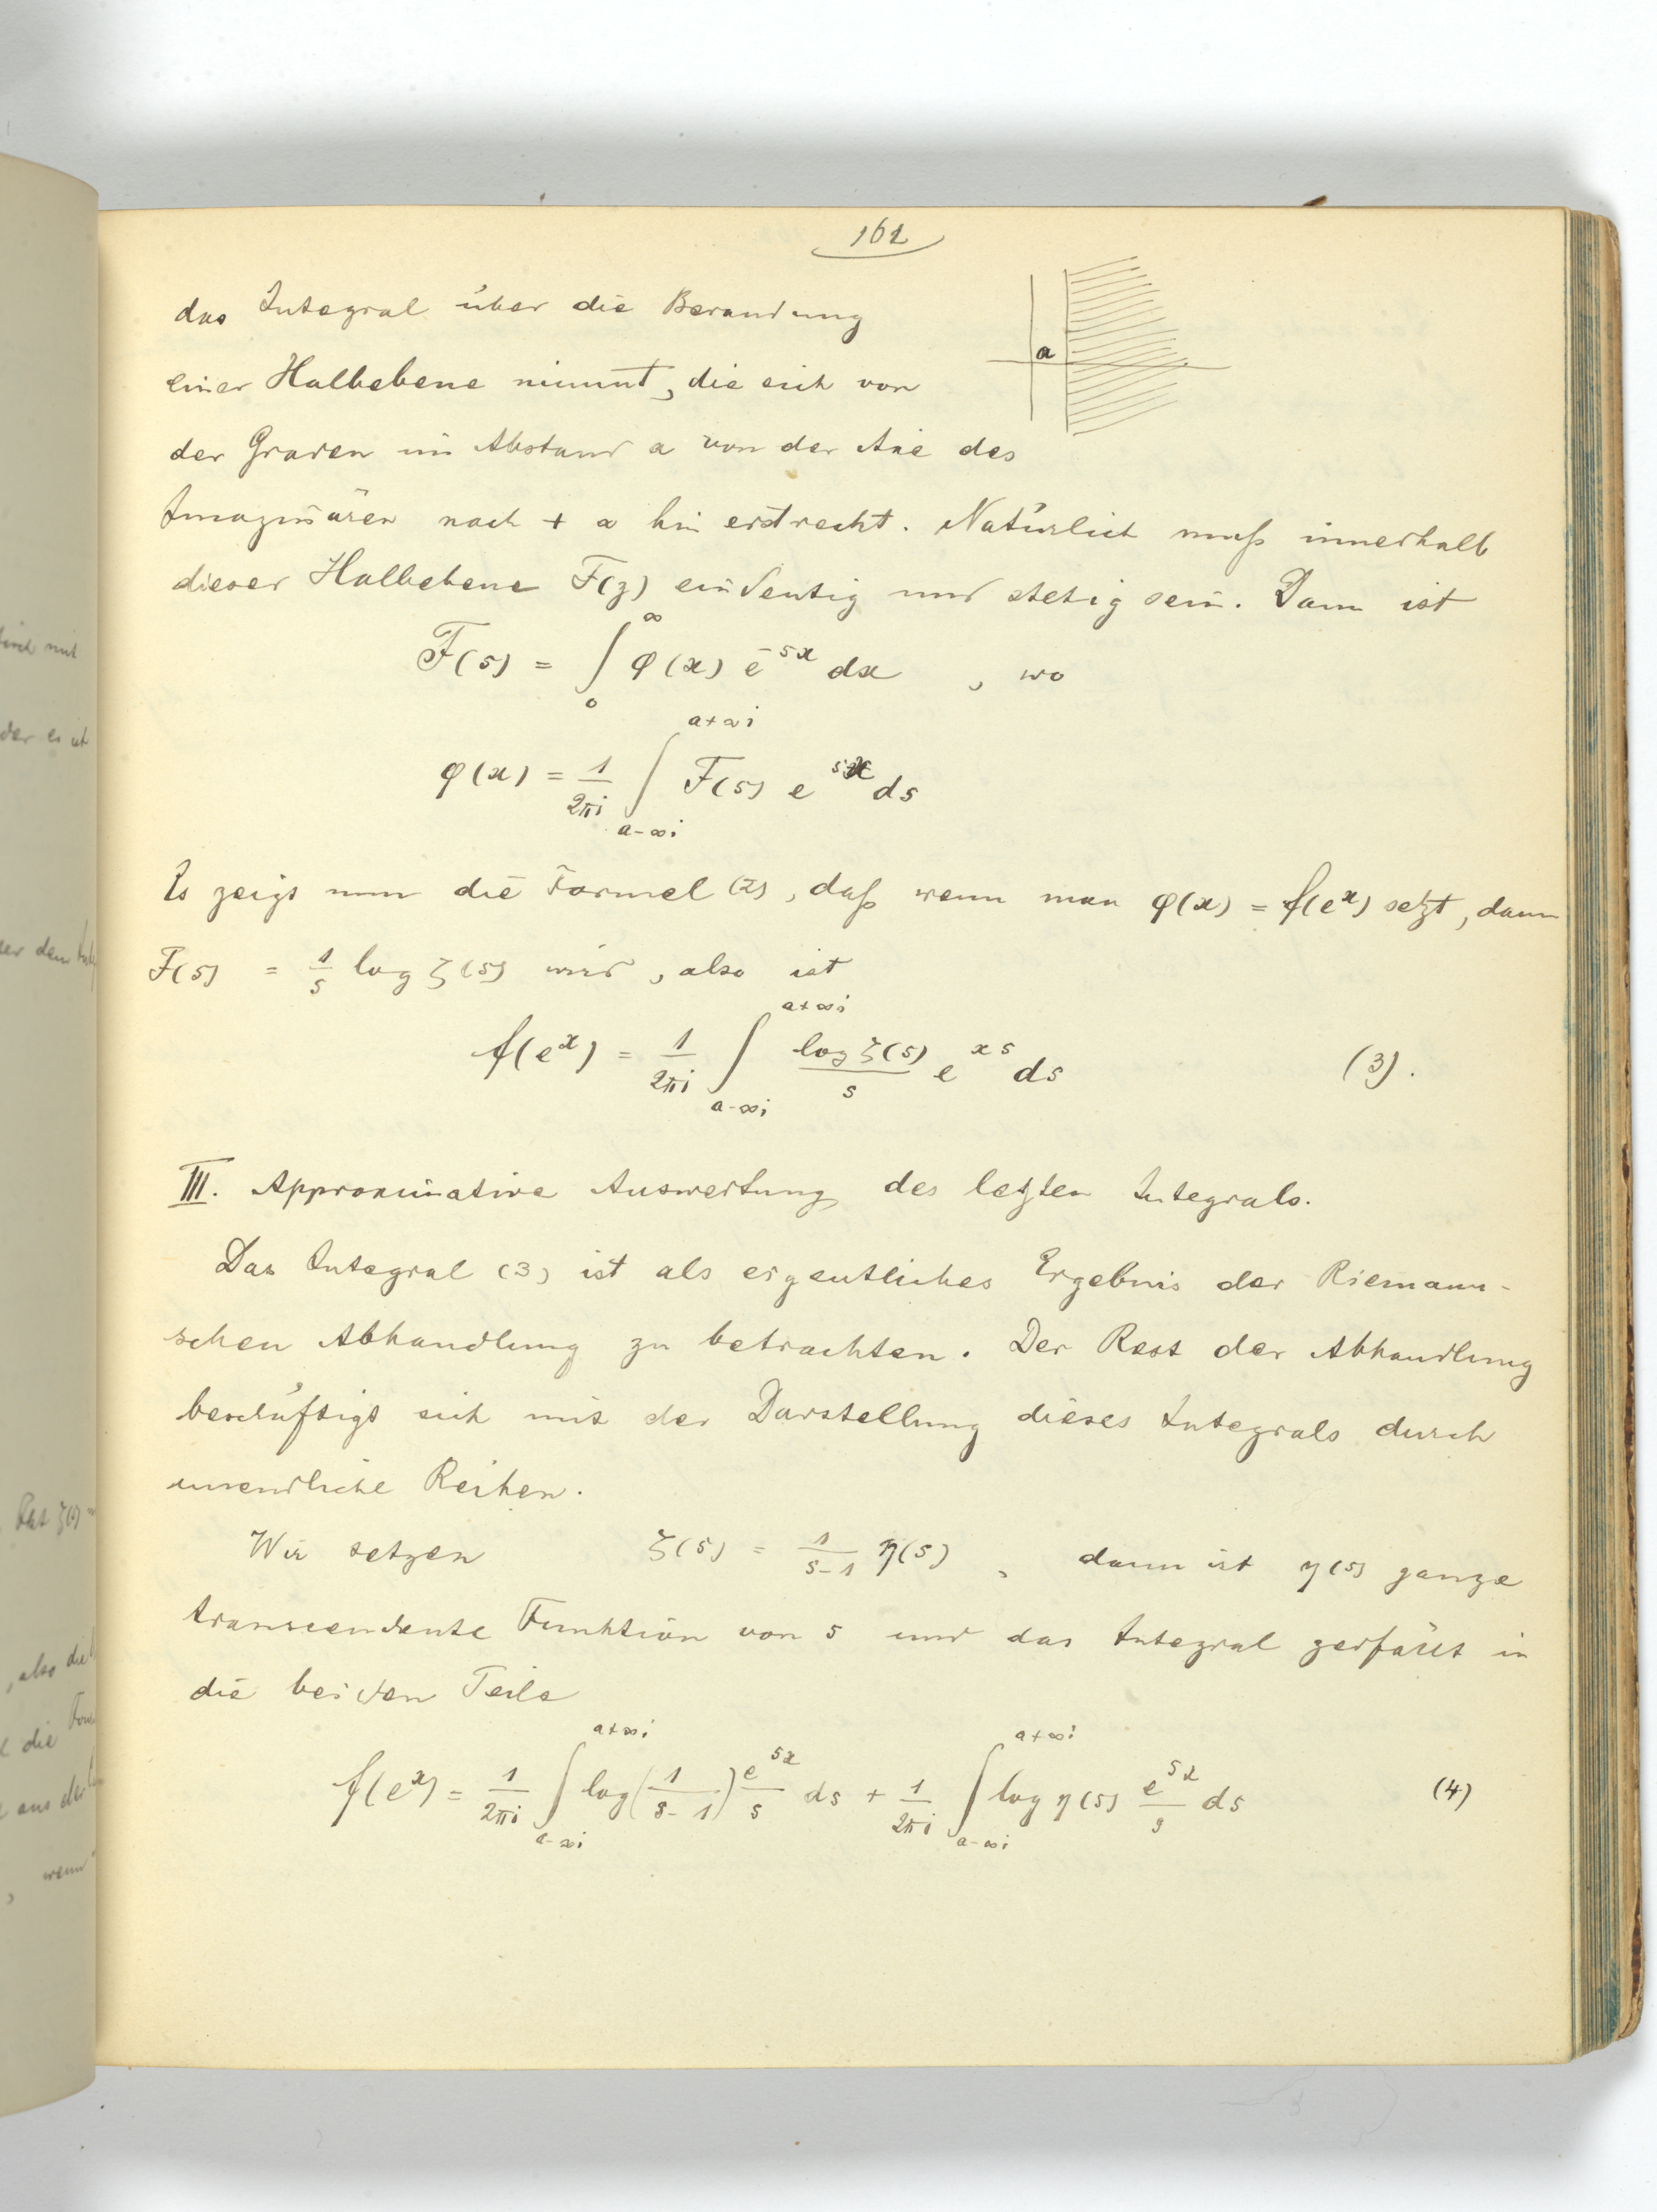 162
das Integral über die Berandung
einer Halbebene nimmt, die sich von
a
der Graden im Abstand a von der Axe des
Imaginären nach + ∞ hin erstreckt. Natürlich muß innerhalb
dieser Halbebene F(z) eindeutig und stetig sein. Dann ist
F(s) = ∫₀^∞ φ(x) e^{-sx} dx , wo
φ(x) = 1/2πi ∫_{a-∞i}^{a+∞i} F(s) e^{sx} ds
Es zeigt nun die Formel (2), daß wenn man φ(x) = f(e^x) setzt, dann
F(s) = 1/s log ζ(s) wird, also ist
f(e^x) = 1/2πi ∫_{a-∞i}^{a+∞i} log ζ(s)/s e^{xs} ds (3).
III. Approximative Auswertung des letzten Integrals.
Das Integral (3) ist als eigentliches Ergebnis der Riemann-
schen Abhandlung zu betrachten. Der Rest der Abhandlung
beschäftigt sich mit der Darstellung dieses Integrals durch
unendliche Reihen.
Wir setzen ζ(s) = 1/s-1 η(s) , dann ist η(s) ganze
transcendente Funktion von s und das Integral zerfällt in
die beiden Teile
f(e^x) = 1/2πi ∫_{a-∞i}^{a+∞i} log(1/s-1) e^{sx}/s ds + 1/2πi ∫_{a-∞i}^{a+∞i} log η(s) e^{sx}/s ds (4)